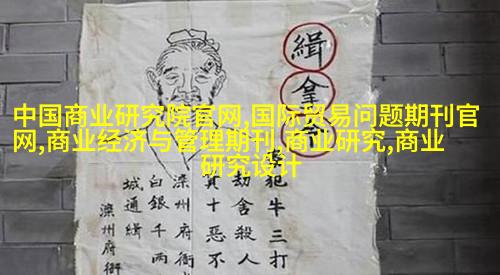 中国商业研究院官网,国际贸易问题期刊官
网,商业经济与管理期刊,商业研究,商业
研究设计
緝拿
犯牛三打
劫舍殺人
其十恶不
滦州府衙
白銀千两
城通緝
滦州府衙